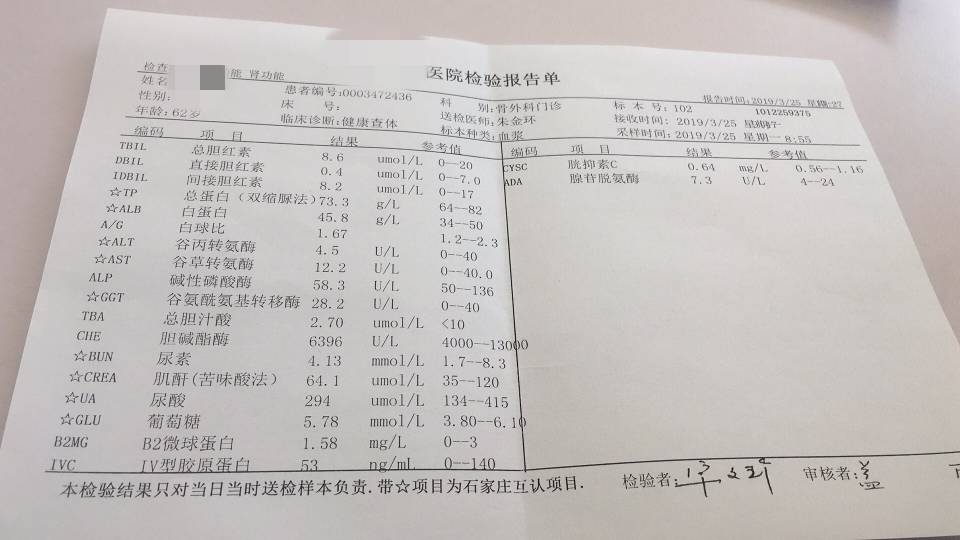 医院检验报告单
检查 能 肾功能
报告时间:2019/3/25 星期 :27
姓名
患者编号:0003472436
科 别:骨外科门诊
标 本 号: 102
1012259375
性别:
床 号:
送检医师:朱金环
接收时间: 2019/3/25 星期
年龄:62岁
临床诊断:健康查体
标本种类:血浆
采样时间: 2019/3/25 星期一 8:55
编码 项 目 结果 参考值
TBIL 总胆红素 8.6 umol/L 0--20
DBIL 直接胆红素 0.4 umol/L 0--7.0
IDBIL 间接胆红素 8.2 umol/L 0--17
☆TP 总蛋白(双缩脲法) 73.3 g/L 64--82
☆ALB 白蛋白 45.8 g/L 34--50
A/G 白球比 1.67 1.2--2.3
☆ALT 谷丙转氨酶 4.5 U/L 0--40
☆AST 谷草转氨酶 12.2 U/L 0--40.0
ALP 碱性磷酸酶 58.3 U/L 50--136
☆GGT 谷氨酰氨基转移酶 28.2 U/L 0--40
TBA 总胆汁酸 2.70 umol/L <10
CHE 胆碱酯酶 6396 U/L 4000--13000
☆BUN 尿素 4.13 mmol/L 1.7--8.3
☆CREA 肌酐(苦味酸法) 64.1 umol/L 35--120
☆UA 尿酸 294 umol/L 134--415
☆GLU 葡萄糖 5.78 mmol/L 3.80--6.10
B2MG B2微球蛋白 1.58 mg/L 0--3
IVC IV型胶原蛋白 53 ng/mL 0--140
编码 项 目 结果 参考值
CYSC 胱抑素C 0.64 mg/L 0.56--1.16
ADA 腺苷脱氨酶 7.3 U/L 4--24
本检验结果只对当日当时送检样本负责.带☆项目为石家庄互认项目.
检验者:
审核者: